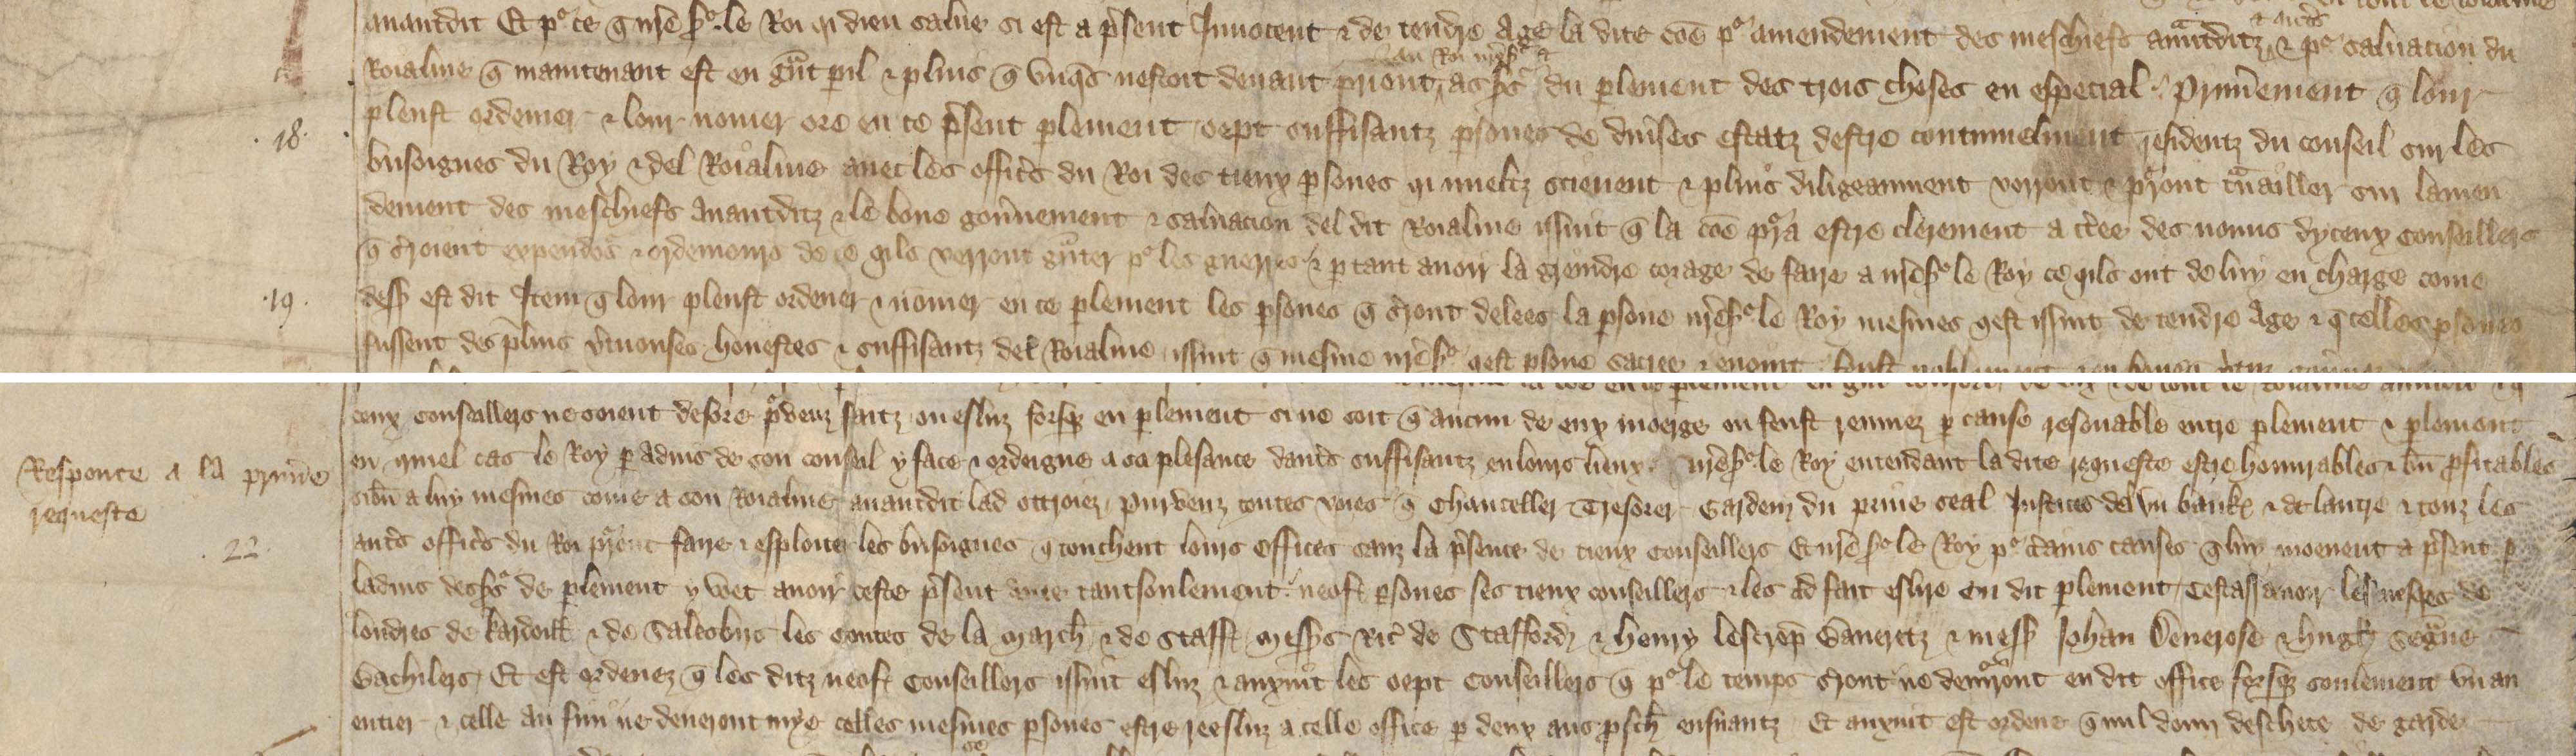 auantdit Et pᵒ ce q̄ nr̄e sᵒ le Roi qi dieu salue si est a p̄sent Innocent & de tendre Age la dite cōe pᵒ amendement des meschiefs auātditz & autˢ & pᵒ saluacion du
Roialme q̄ maintenant est en gᵃnt peril & pluis q̄ vnq̄s nestoit deuant priont au Roi nr̄e sᵒ & as sᵒs du plement des trois choses en especial Primerement q̄ lour
18. pleust ordeiner & lour nomer ore en ce p̄sent plement oept suffisantz psones de diuses estatz destre continuelment residentz du conseil sur les
busoignes du Roy & del Roialme auec les officˢ du Roi des tieux psones qi mieltz scieuent & pluis diligeaument verront & pᵒront tᵃuailler sur lamen
dement des meschiefs auantditz & le bone gou̾nement & saluacion del dit Roialme issint q̄ la cōe pᵒra estre clerement a c̾tee des nouns dyceux Conseillers
q̄ s̾roient expendoˢ & ordeinours de ce qils verront gᵃnter pᵒ les guerres & par tant auoir la greindre corage de faire a nr̄e sᵒ le Roy ce qils ont de luy en charge come
19. dess⁹ est dit Item q̄ lour pleust ordener & nomer en ce plement les psones q̄ s̾ront delees la psone nr̄e sᵒ le Roy mesmes qest issint de tendre Age & q̄ celles psones
fussent des pluis v̾tuouses honestes & suffisantz del Roialme issint q̄ mesme nr̄e sᵒ qest psone sacree & enoint
ceux conseillers ne soient desore pᵒueuz faitz ou esluz forsq̨ en plement si ne soit q̄ aucun de eux moerge ou feust remuez p cause resonable entre plement & plement
Responce a la prim̾e requeste
en quiel cas le Roy p aduis de son conseil y face & ordeigne a sa plesance dautˢ suffisantz en lours lieux nr̄e sᵒ le Roy entendant la dite requeste estre honurables & bn̄ pfitables
sibn̄ a luy mesmes come a son Roialme auantdit lad ottroiez purueuz toutes voies q̄ Chanceller Tresorer Gardein du priue seal Justices del vn bank & de lautre & touz les
22. autˢ officˢ du Roi pᵒront faire & esploiter les busoignes q̄ touchent lours offices sanz la p̄sence de tieux Conseillers Et nr̄e sᵒ le Roy pᵒ c̾tains causes q̄ luy moeuent a p̄sent p
laduis des sᵒs de plement y voet auoir ceste p̄sent tantsoulement neof psones ses tieux conseillers & les ad fait eslire en dit plement Cestassauoir les euesqes de
londres de Kardoill & de Salesbirs les Contes de la March & de Staff messˢ Ric̾ de Stafford & Henry lescrop Baneretz & mess Johan Deuerose & Hugh Segᵃue
Bachilers Et est ordenez q̄ les ditz neof Conseillers issint esluz & auxint les oept Conseillers q̄ pᵒ le temps s̾ront ne demᵒront en dit office forsq̨ soulement vn an
entier & celle an fini ne deueront mye celles mesmes psones estre reesluz a celle office p deux ans psch ensuantz Et auxint est ordene q̄ nul doun deschete de garde